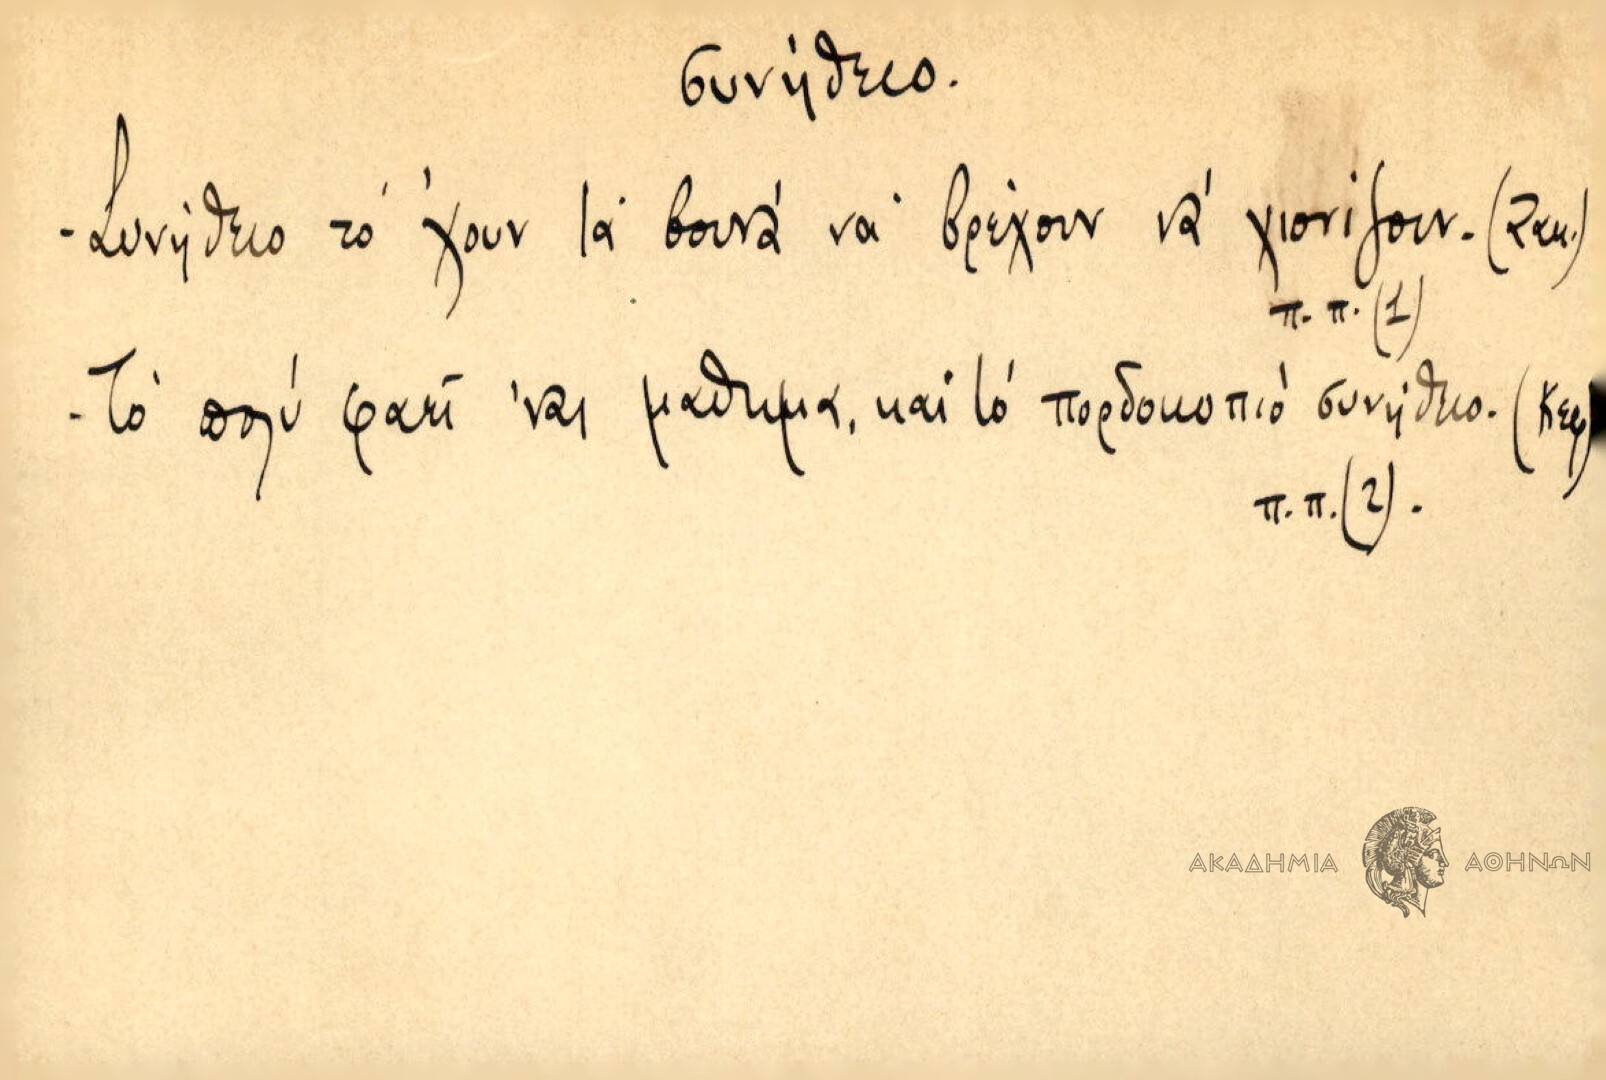 συνήθειο.
- Συνήθειο τό 'χουν τά βουνά νά βρέχουν νά χιονίζουν. (Ζακ.)
π. π. (1)
- Τό πολύ φαΐ 'ναι μάθημα, καί τό πορδοκοπιό συνήθειο. (Κεφ)
π. π. (2).
ΑΚΑΔΗΜΙΑ ΑΘΗΝΩΝ